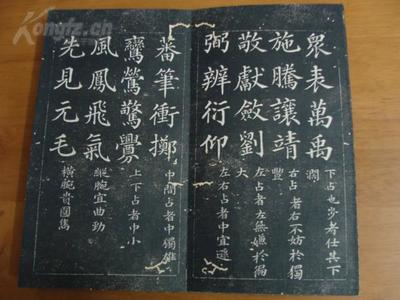 Kongfz.cn
衆表萬禹
下占地步者任其下
濶
施騰讓靖
右占者右不妨於獨
豐
敬獻斂劉
左占者左無嫌於偏
大
弼辨衍仰
左右占者中宜遜
蕃筆衝擲
中間占者中獨雄
鸞鶯驚釁
上下占者中小
風鳳飛氣
縱腕宜曲勁
先見元毛
橫腕貴圓雋